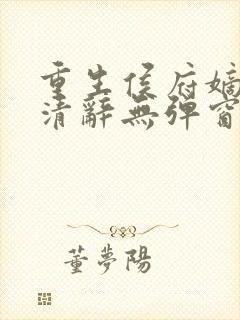 重生侯府嫡
清辭無彈窗
董夢陽